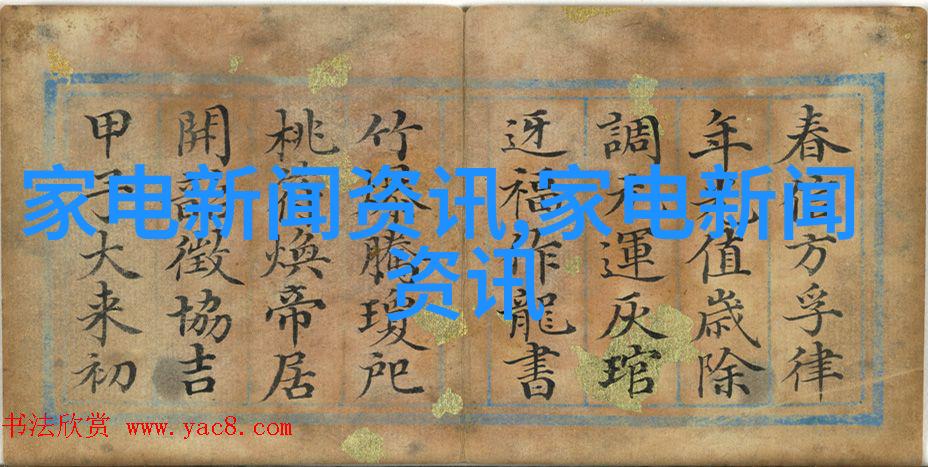 春方孚律
年值歲除
調運灰琯
迓福作龍書
竹騰瓊
桃煥帝居
開韶徵協吉
甲子大来初
家电新闻资讯,家电新闻
资讯
书法欣赏 www.yac8.com